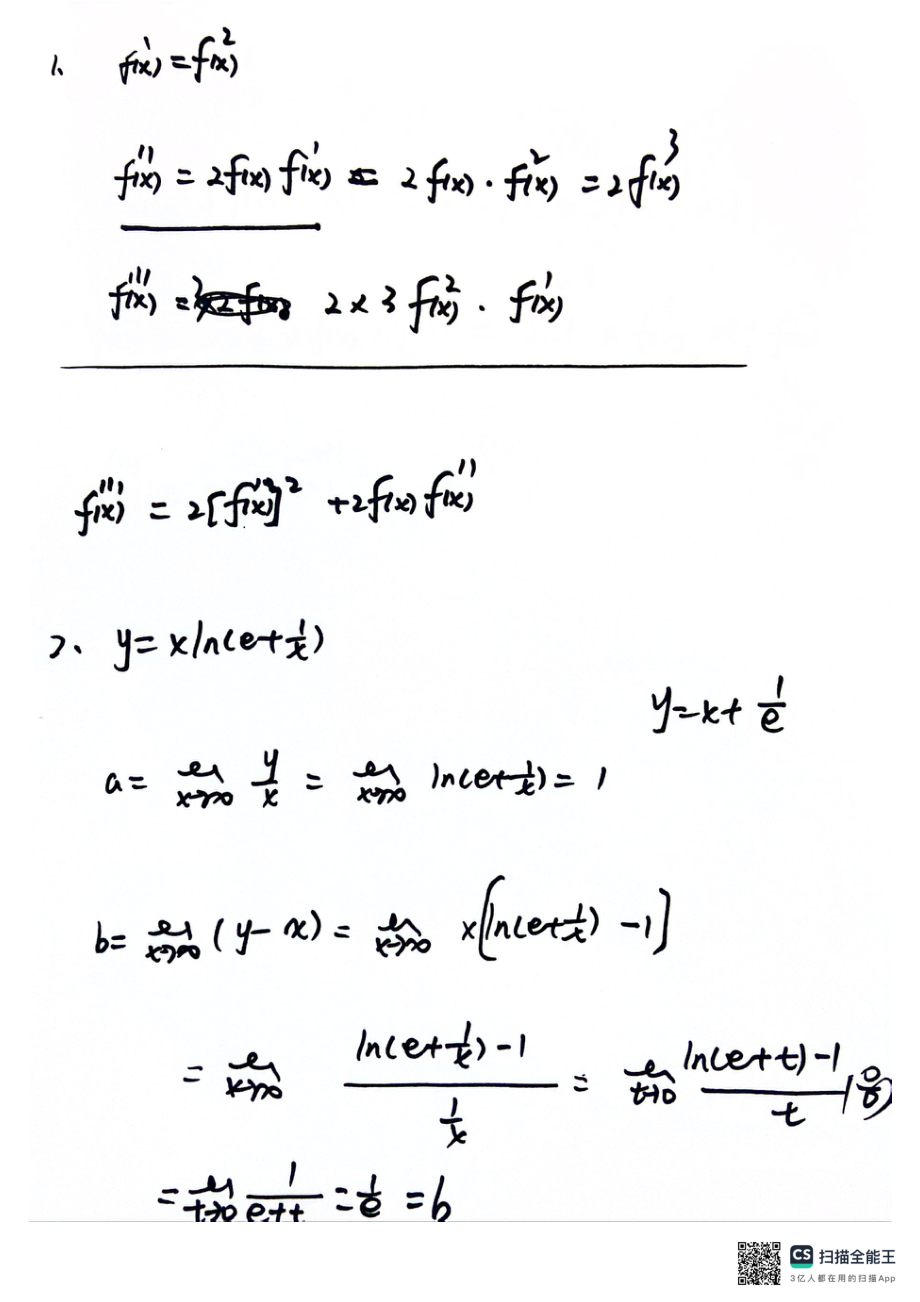 1、 f'(x) = f²(x)
f''(x) = 2f(x) f'(x) = 2f(x) · f²(x) = 2f³(x)
f'''(x) = 2×3 f²(x) · f'(x)
f'''(x) = 2[f'(x)]² + 2f(x) f''(x)
2、 y = x ln(e+1/x)
y = x + 1/e
a = lim x→∞ y/x = lim x→∞ ln(e+1/x) = 1
b = lim x→∞ (y - x) = lim x→∞ x[ln(e+1/x) - 1]
= lim x→∞ (ln(e+1/x) - 1)/(1/x) = lim t→0 (ln(e+t) - 1)/t (0/0)
= lim t→0 1/(e+t) = 1/e = b
CS 扫描全能王
3亿人都在用的扫描App